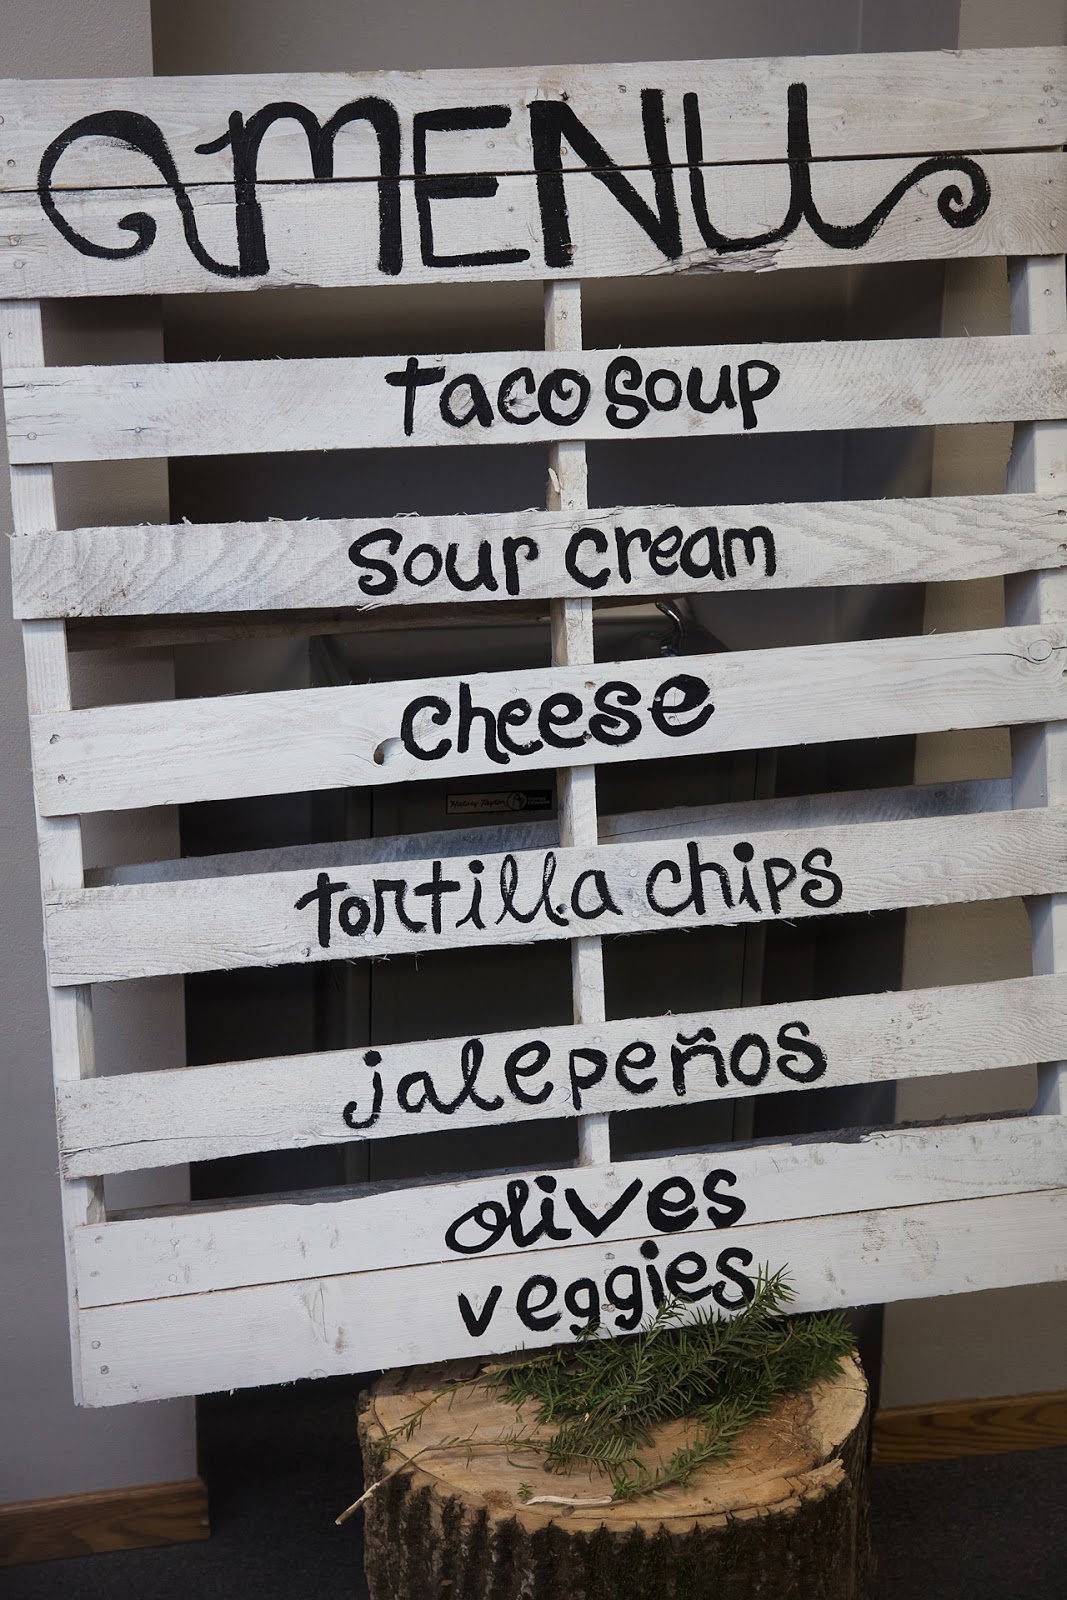 MENU
taco soup
sour cream
cheese
tortilla chips
jalepeños
olives
veggies
Halsey Taylor